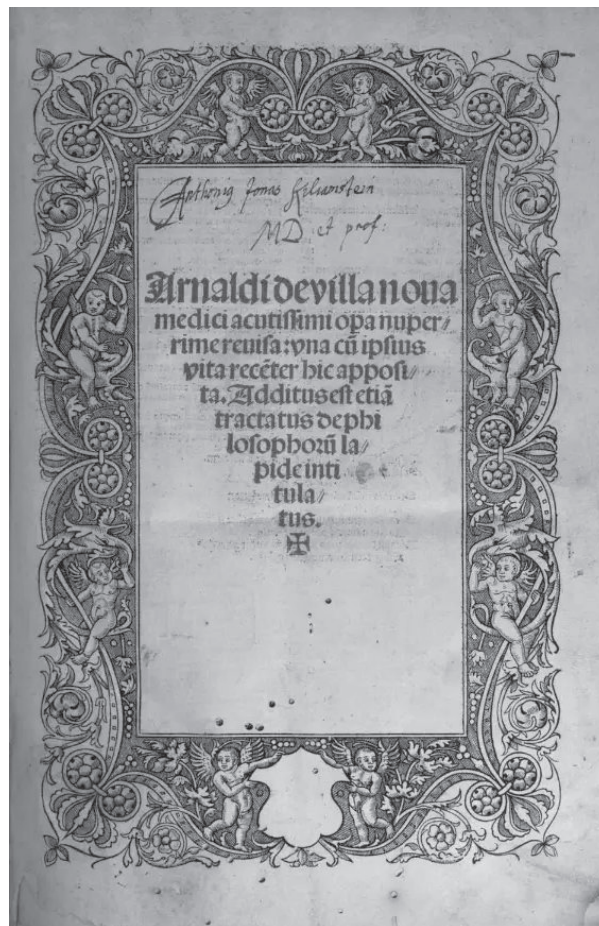 Anthonig Jonas Kilianstein
MD et prof:
Arnaldi de villa noua
medici acutissimi op̄a nuper⸗
rime reuisa: vna cū ipsius
vita recēter hic apposi⸗
ta. Additus est etiā
tractatus de phi
losophorū la⸗
pide inti
tula⸗
tus.
✠